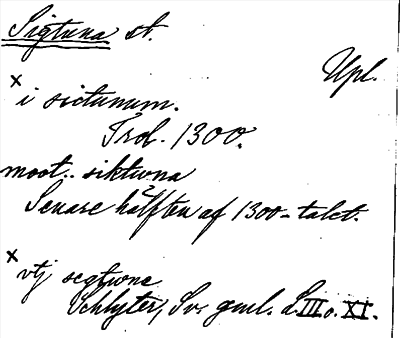 Sigtuna st.
Upl.
× i sictunum.
Trol. 1300.
moot.. siktuna
Senare hälften af 1300-talet.
× vtj segtwne
Schlyter, Sv. gml. L. III o. XI.